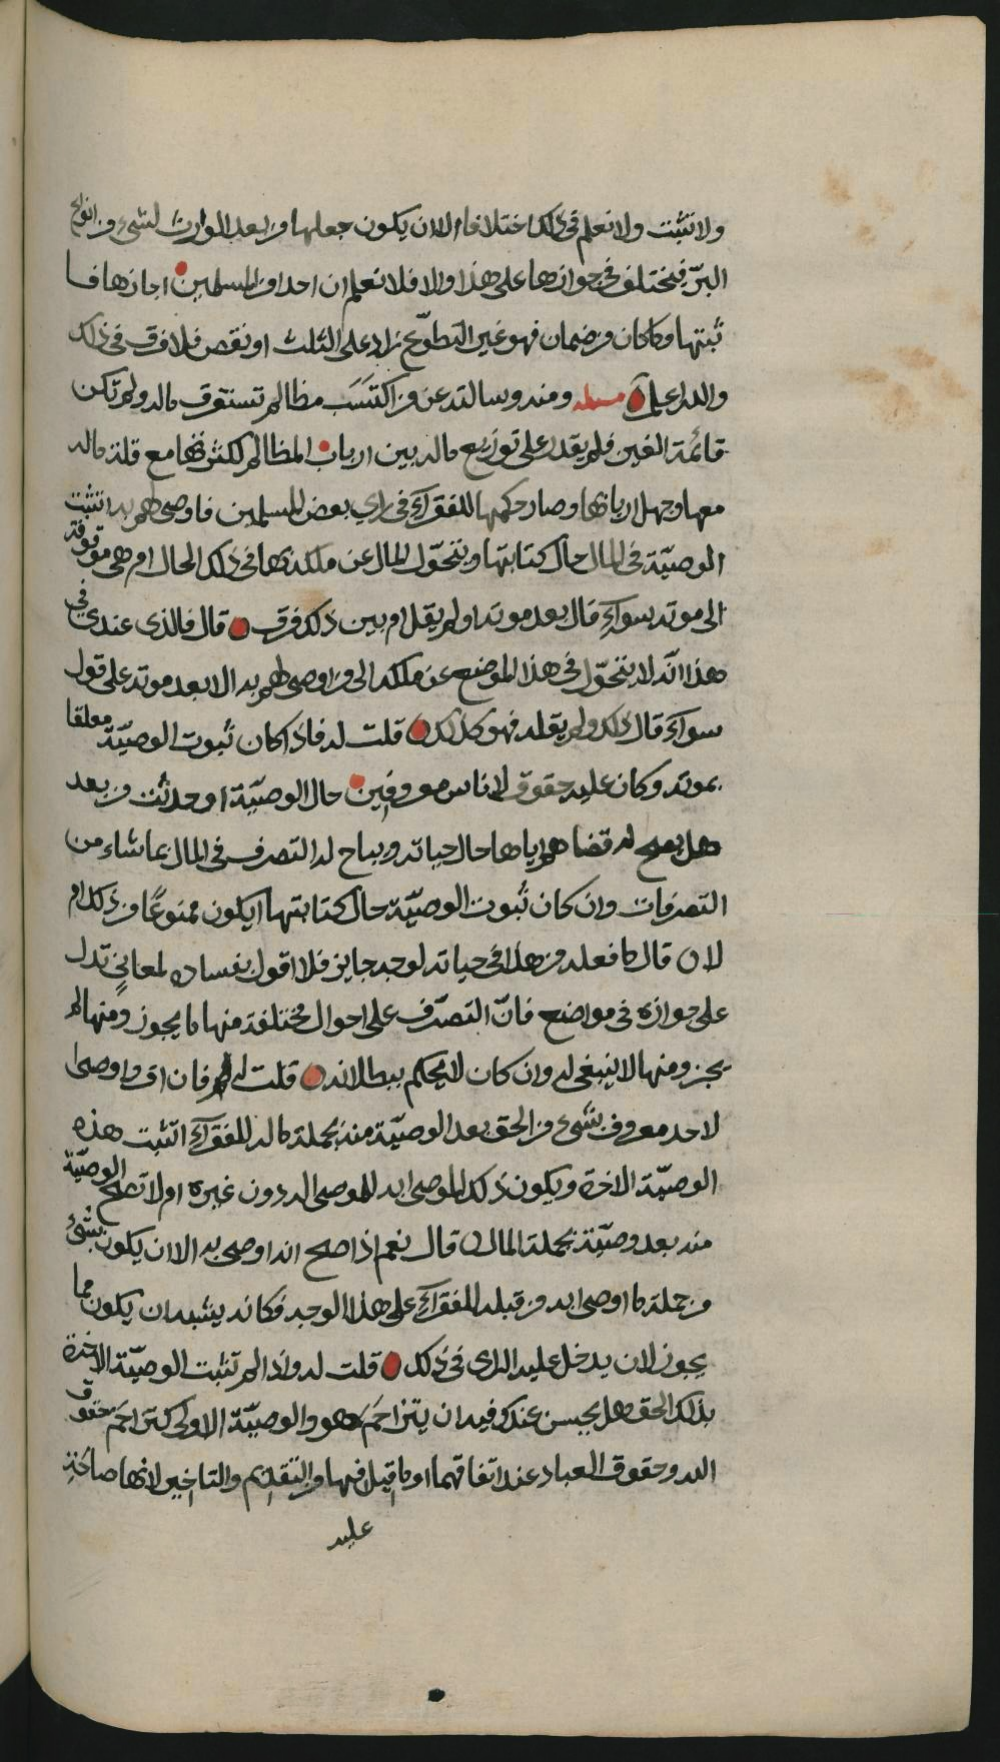 ولا تثبت ولا نعلم في ذلك اختلافا الا ان يكون جعلها من بعد الوارث لشيء من انواع
البرّ فيختلف في جوازها على هذا والا فلا نعلم ان احدا من المسلمين اجازها فما
ثبتها وما كان من ضمان فهو غير التطوّع زاد على الثلث او نقص فلا فرق في ذلك
والله اعلم مسئلة ومنه وسالته عن من اكتسَبَ مظالم تستغرق ماله ولم تكن
قائمة العين فلم يقدر على توزيع ماله بين ارباب المظالم لكثرتها مع قلة ماله
معها وجهل اربابها وصار حكمها للفقرآء في راي بعض المسلمين فاوصى لهم به اتثبت
الوصيّة في المال حال كتابتها ويتحوّل المال عن ملكه بها في ذلك الحال ام هي موقوفة
الى موته سوآء قال بعد موته او لم يقل ام بين ذلك فرق قال فالذي عندي في
هذا انّه لا يتحوّل في هذا الموضع عن ملكه الى من اوصى لهم به الا بعد موته على قول
سوآء قال ذلك ولم يقله فهو كذلك قلت له فاذا كان ثبوت الوصيّة معلقا
بموته وكان عليه حقوق لاناس معروفين حال الوصيّة او حدثت من بعد
هل يصح له قضاهم اياها حال حياته ويباح له التصرف في المال بما شاء من
التصرفات وان كان ثبوت الوصيّة حال كتابتها ايكون ممنوعًا من ذلك ام
لا قال ما فعله من هذا في حياته لوجه جايز فلا اقول بفساده لمعانٍي تدل
على جوازه في مواضع فانّ التصرّف على احوال مختلفة منها ما يجوز ومنها لم
يجز ومنها لا ينبغي له وان كان لا يحكم ببطلانه قلت له فان اقر او اوصى
لاحد معروف بشيء من الحق بعد الوصيّة منه بجملة ماله للفقرآء اتثبت هذه
الوصيّة الاخرة ويكون ذلك الموصى به للموصى له دون غيره ام لا تصح الوصيّة
منه بعد وصيّته بجملة المال قال نعم اذا صح انه اوصى به الا ان يكون بشيء
من جملة ما اوصى به من قبله للفقرآء على هذا الوجه فكانه يشبه ان يكون مما
يجوز لان يدخل عليه الراي في ذلك قلت له واذا لم تثبت الوصيّة الاخرة
بذلك الحق هل يحسن عندك فيه ان يتزاحَمَ هو والوصيّة الاولى كتزاحم حقوق
الله وحقوق العباد عند اتفاقهما او ما قيل فيها من التقديم والتاخير لانها صائرة
عليه